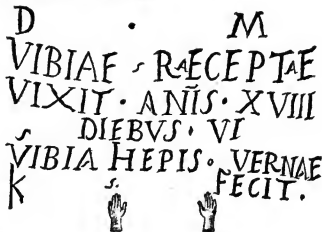 D · M
VIBIAE S RAECEPTAE
VIXIT · ANIS · XVIII
DIEBVS · VI
S VIBIA HEPIS · VERNAE
K S. FECIT ·